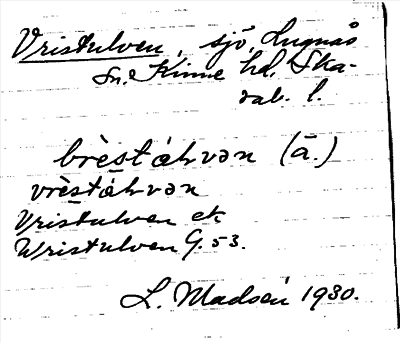 Vristulven, sjö, Lugnås
sn. Kinne hd, Ska-
rab. l.
brèstáhvən (ā.)
vrèstáhvən
Vristulven ek
Wristulven G. 53.
L. Madsén 1930.